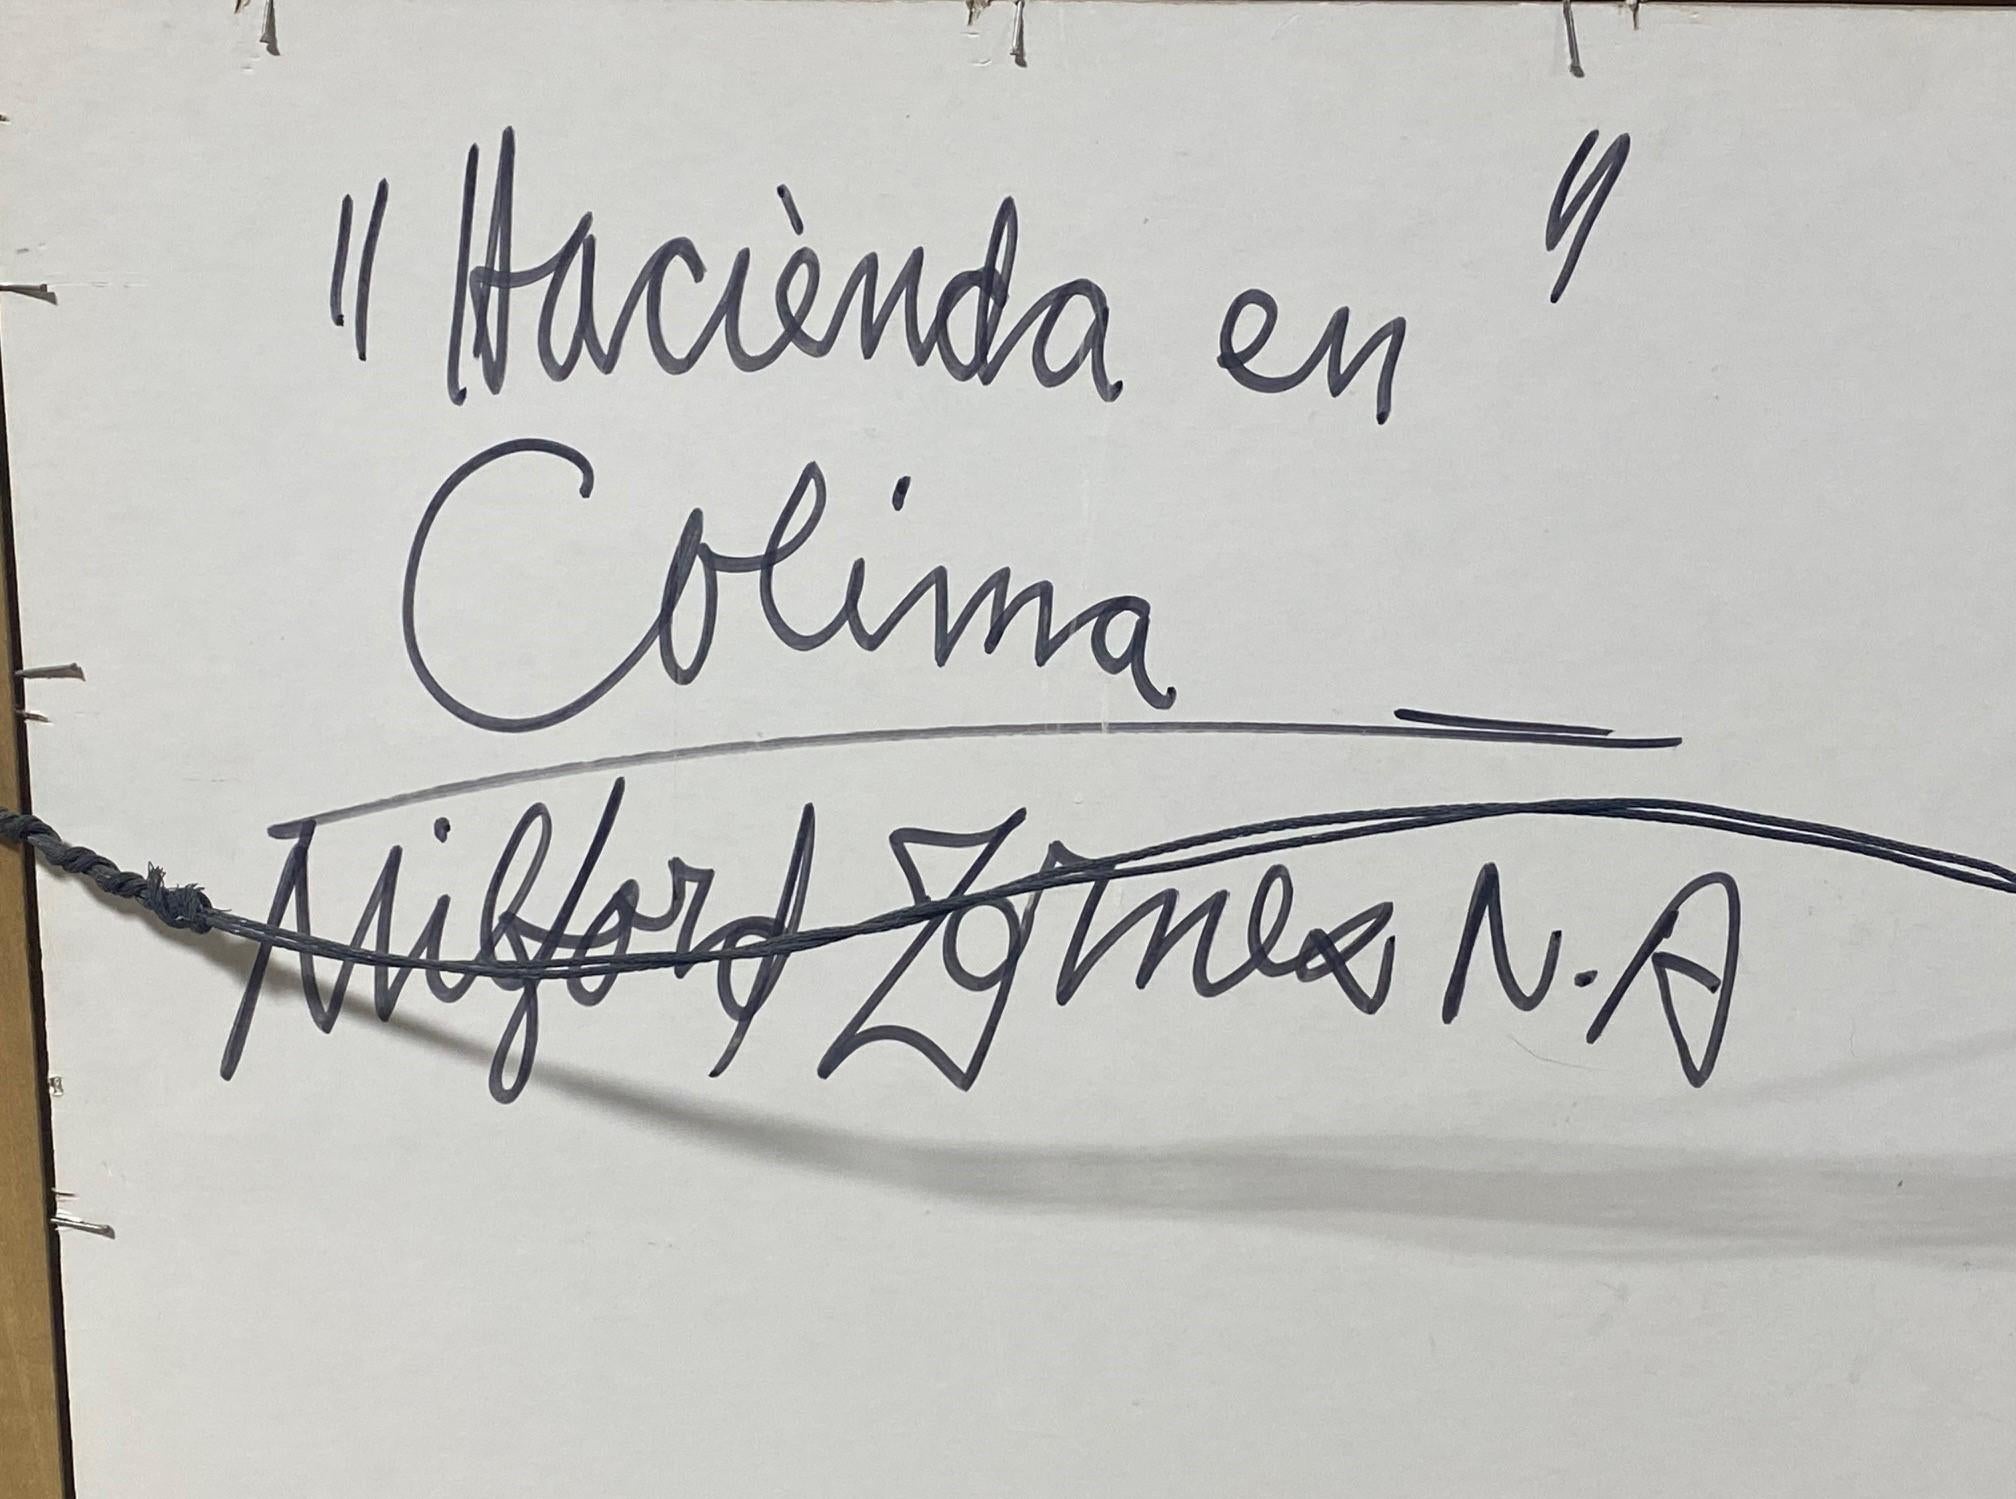 "Hacienda en"
Colima
Milford Zornes N.A